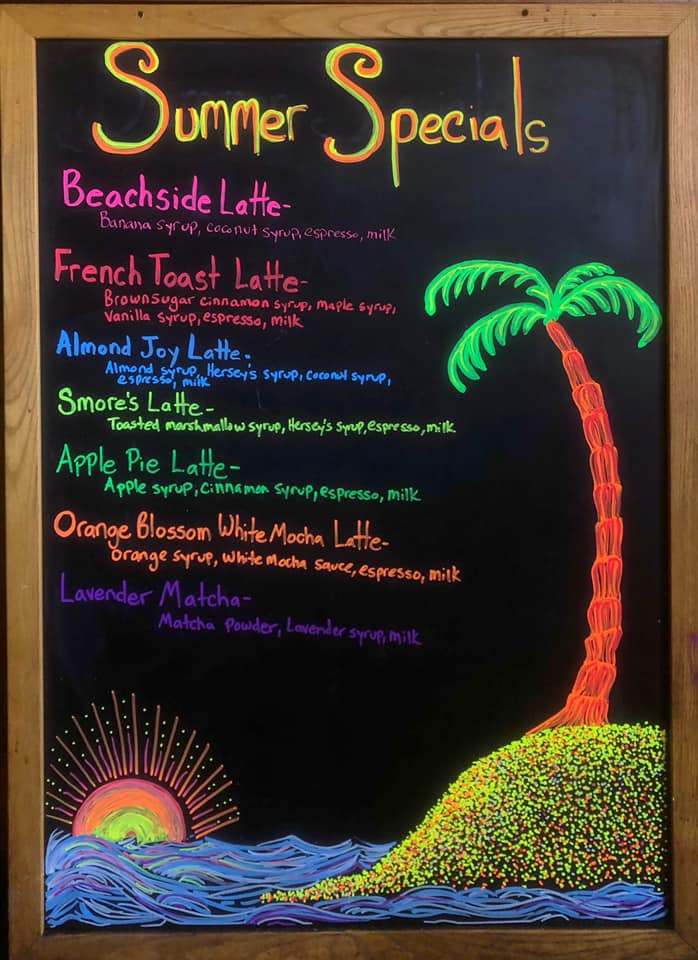 Summer Specials
Beachside Latte-
Banana syrup, coconut syrup, espresso, milk
French Toast Latte-
Brownsugar cinnamon syrup, maple syrup,
Vanilla syrup, espresso, milk
Almond Joy Latte-
Almond syrup, Hersey's syrup, coconut syrup,
espresso, milk
Smore's Latte-
Toasted marshmallow syrup, Hersey's syrup, espresso, milk
Apple Pie Latte-
Apple syrup, cinnamon syrup, espresso, milk
Orange Blossom White Mocha Latte-
Orange syrup, White Mocha sauce, espresso, milk
Lavender Matcha-
Matcha Powder, Lavender syrup, milk